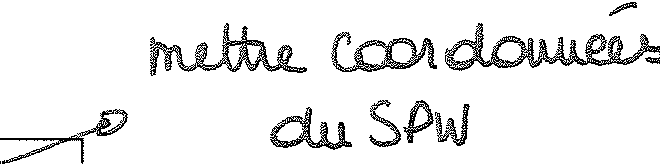 mettre coordonnées
du SPW